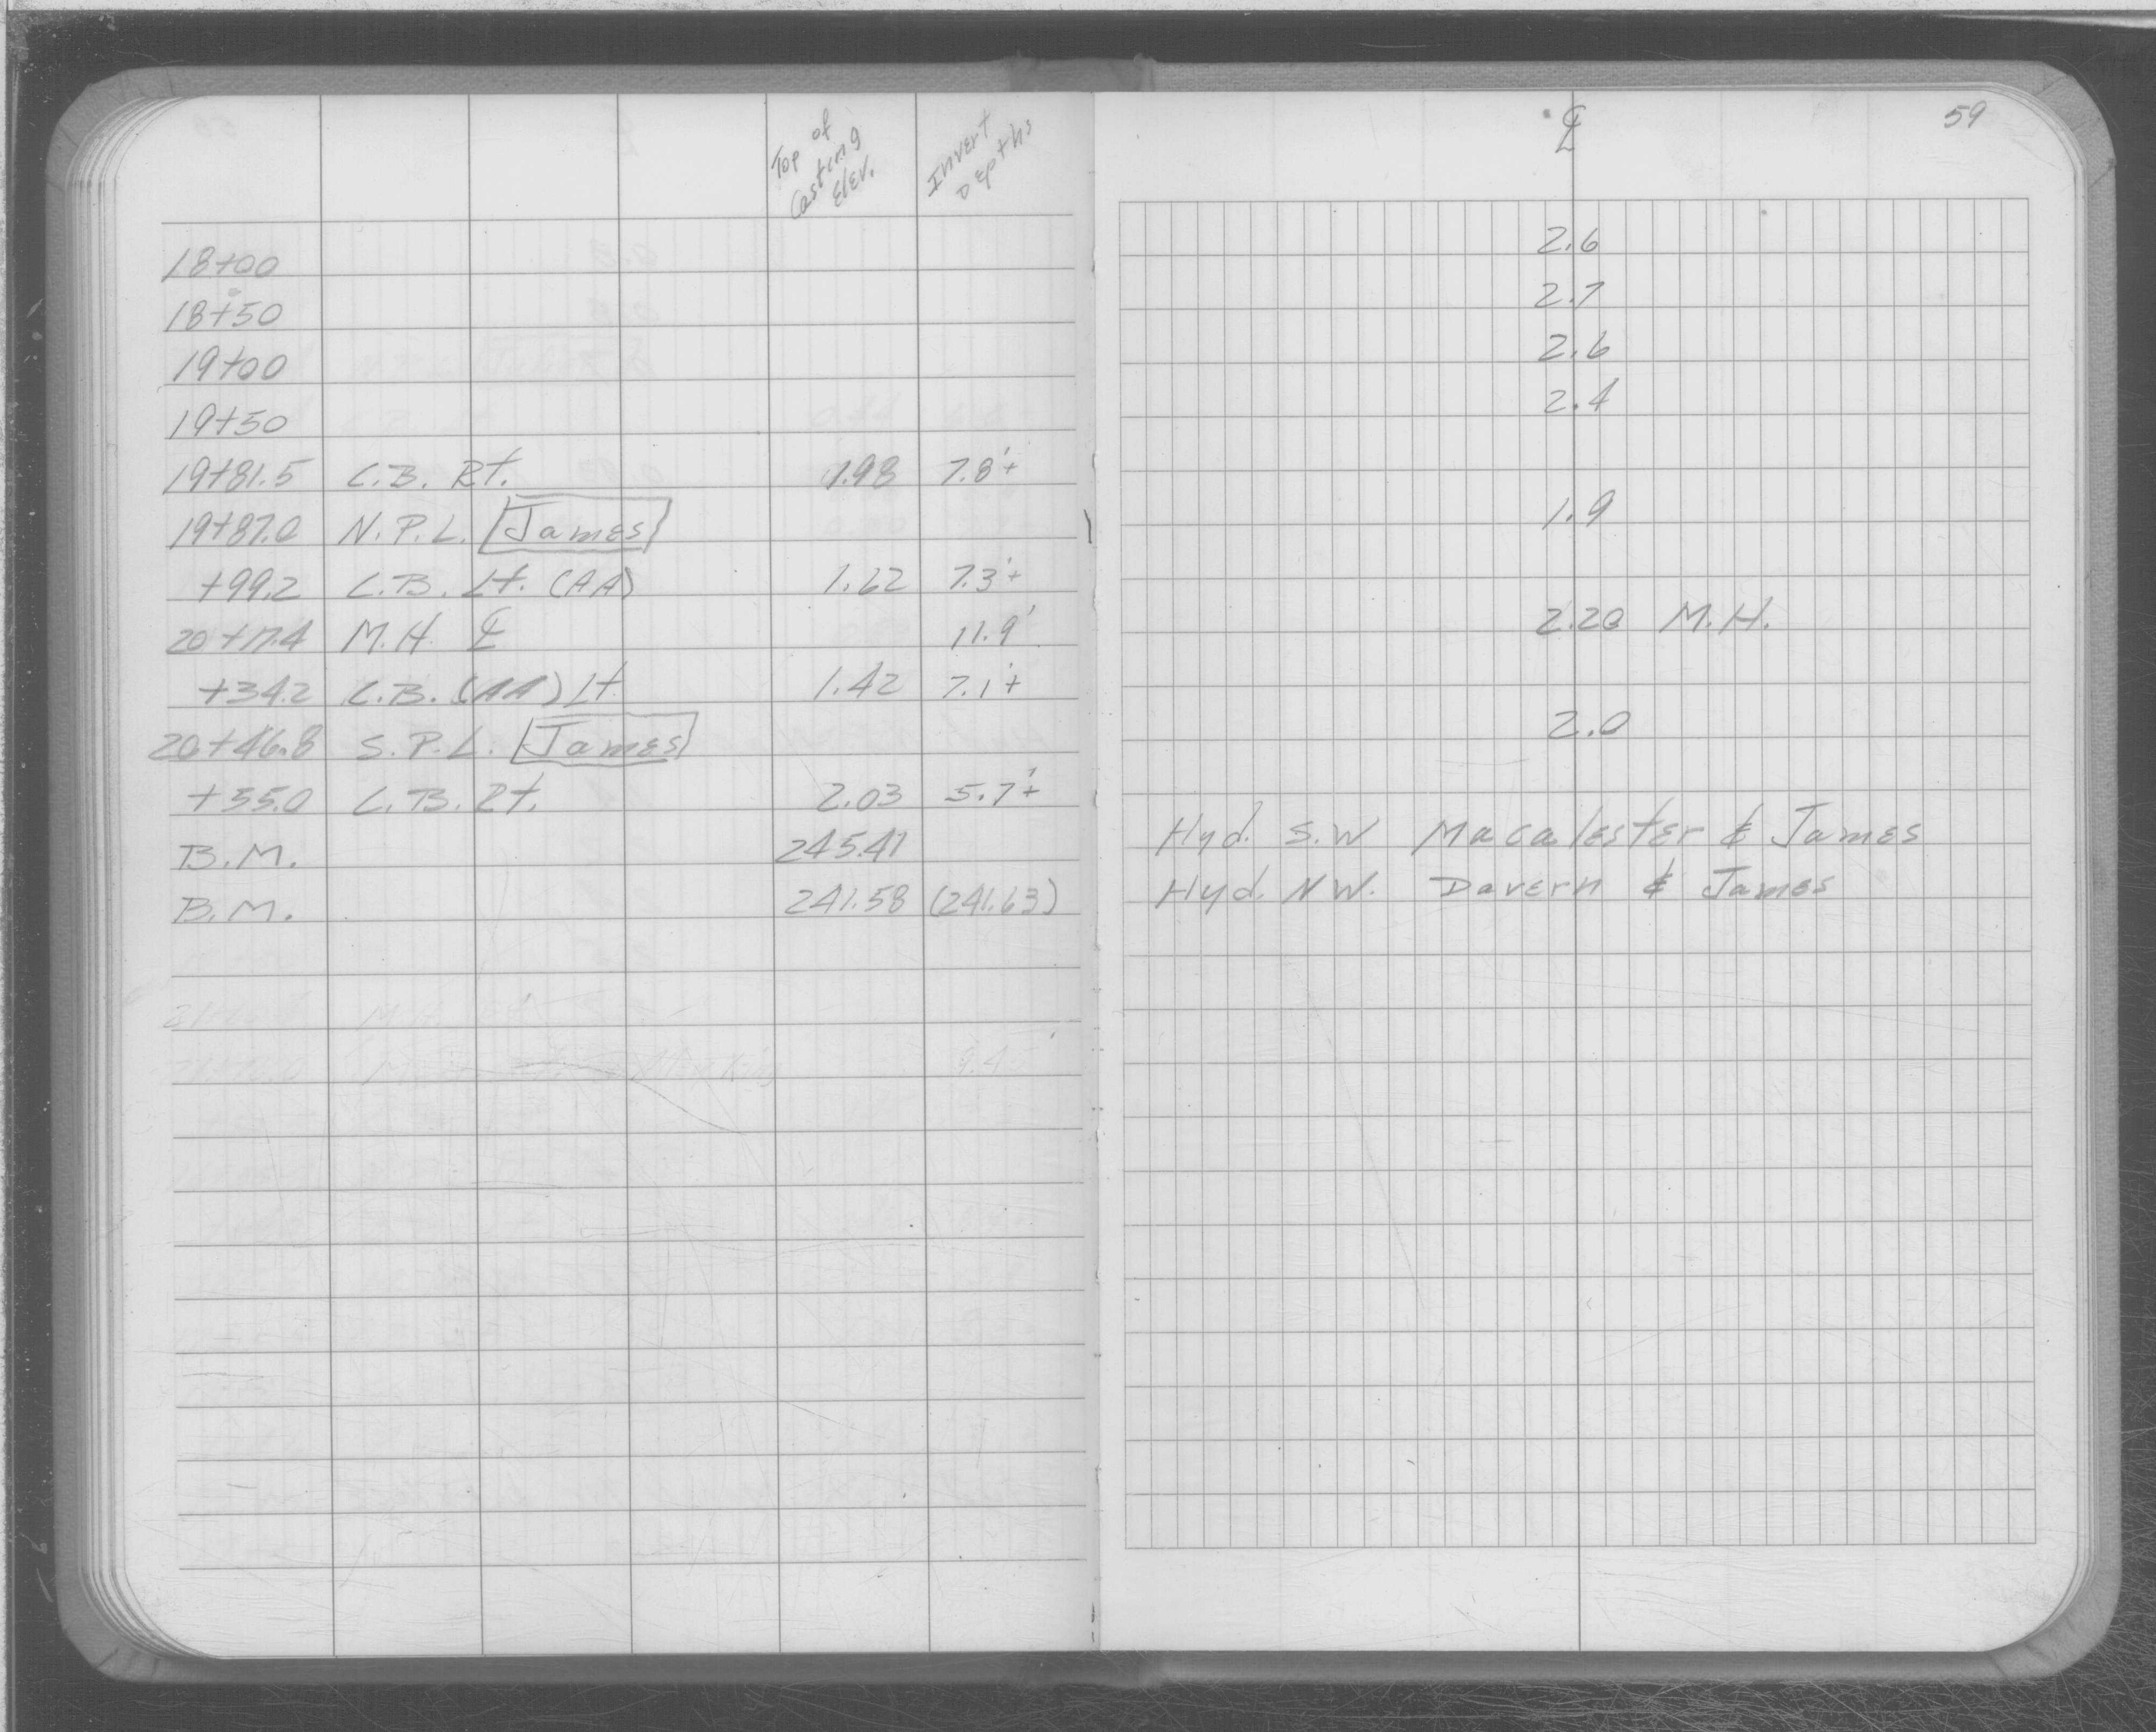 Top of Casting Elev.
Invert Depths
℄
59
18+00 2.6
18+50 2.7
19+00 2.6
19+50 2.4
19+81.5 C.B. Rt. 1.98 7.8'+
19+87.0 N.P.L. James 1.9
+99.2 C.B. Lt. (AA) 1.62 7.3'+
20+17.4 M.H. ℄ 11.9' 2.20 M.H.
+34.2 C.B. (AA) Lt. 1.42 7.1'+
20+46.8 S.P.L. James 2.0
+55.0 C.B. Rt. 2.03 5.7'+
B.M. 245.41 Hyd. S.W Macalester & James
B.M. 241.58 (241.63) Hyd. NW. Davern & James